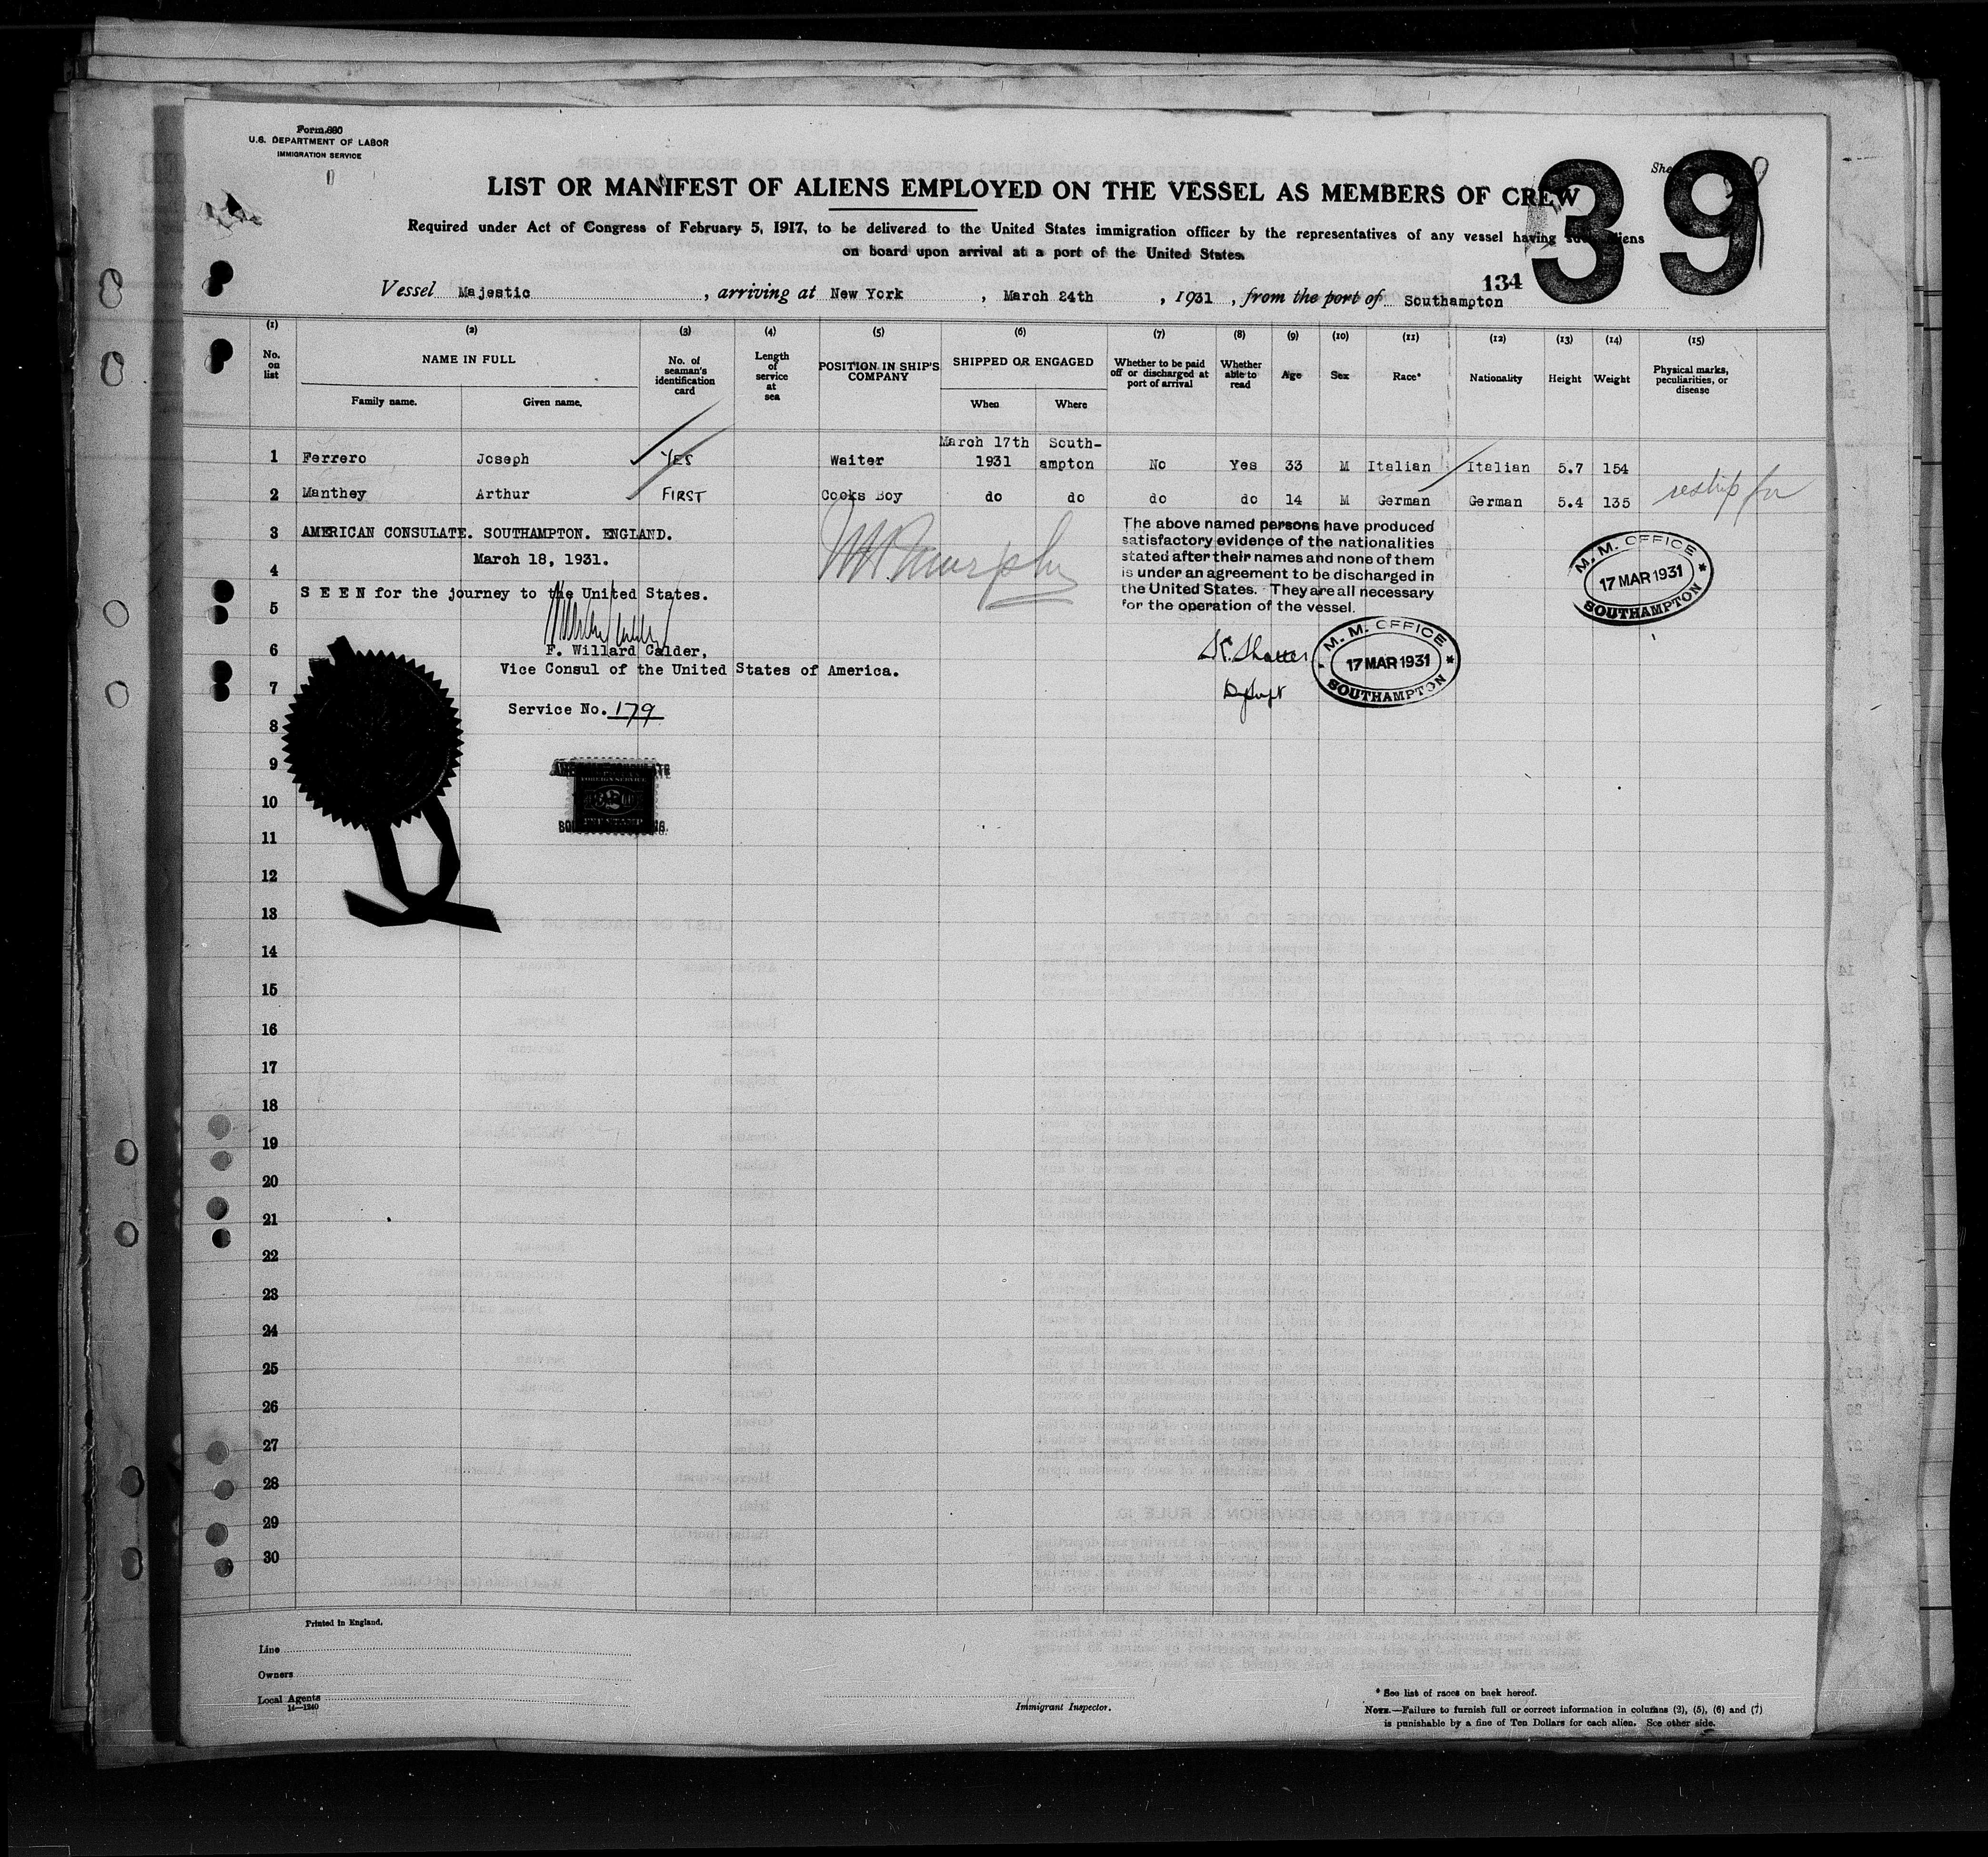 Form 680
U.S. DEPARTMENT OF LABOR
IMMIGRATION SERVICE
39
LIST OR MANIFEST OF ALIENS EMPLOYED ON THE VESSEL AS MEMBERS OF CREW
Required under Act of Congress of February 5, 1917, to be delivered to the United States immigration officer by the representatives of any vessel having such aliens
on board upon arrival at a port of the United States.
134
Vessel Majestic, arriving at New York, March 24th, 1931, from the port of Southampton
(1) (2) (3) (4) (5) (6) (7) (8) (9) (10) (11) (12) (13) (14) (15)
No. on list
NAME IN FULL
Family name. Given name.
No. of seaman's identification card
Length of service at sea
POSITION IN SHIP'S COMPANY
SHIPPED OR ENGAGED
When Where
Whether to be paid off or discharged at port of arrival
Whether able to read
Age
Sex
Race*
Nationality
Height
Weight
Physical marks, peculiarities, or disease
1 Ferrero Joseph YES Waiter March 17th 1931 South-ampton No Yes 33 M Italian Italian 5.7 154
2 Manthey Arthur FIRST Cooks Boy do do do do 14 M German German 5.4 135 reship for
3 AMERICAN CONSULATE. SOUTHAMPTON. ENGLAND.
March 18, 1931.
4
S E E N for the journey to the United States.
5
6 F. Willard Calder,
Vice Consul of the United States of America.
7
Service No. 179
8
The above named persons have produced
satisfactory evidence of the nationalities
stated after their names and none of them
is under an agreement to be discharged in
the United States. They are all necessary
for the operation of the vessel.
M. M. OFFICE
17 MAR 1931
SOUTHAMPTON
M. M. OFFICE
17 MAR 1931
SOUTHAMPTON
FOREIGN SERVICE
9
10
11
12
13
14
15
16
17
18
19
20
21
22
23
24
25
26
27
28
29
30
Printed in England.
Line
Owners
Local Agents
14—1240
Immigrant Inspector.
* See list of races on back hereof.
NOTE.—Failure to furnish full or correct information in columns (2), (5), (6) and (7)
is punishable by a fine of Ten Dollars for each alien. See other side.